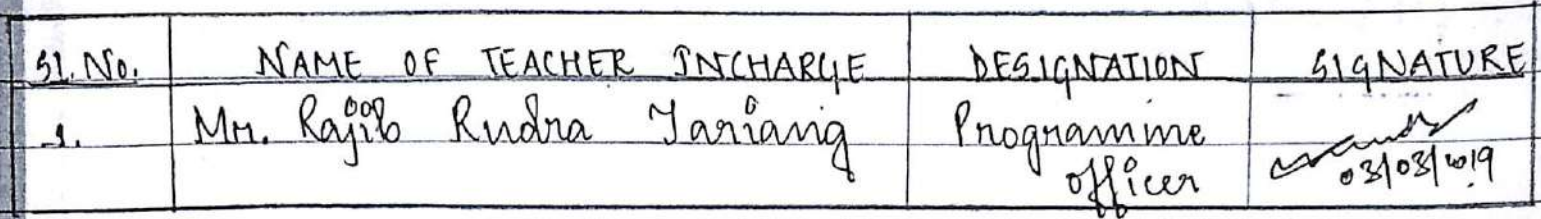 SL. No. NAME OF TEACHER INCHARGE DESIGNATION SIGNATURE
1. Mr. Rajib Rudra Tariang Programme
officer
03/03/2019